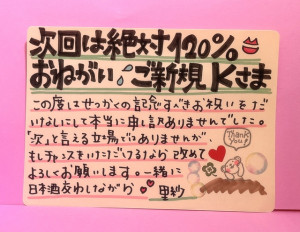 次回は絶対120%
おねがい、ご新規Kさま
この度はせっかくの記念すべきお祝いをだ
いなしにして本当に申し訳ありませんでした。
「次」と言える立場ではありませんが
もしチャンスをいただけるなら改めて
よろしくお願いします。一緒に
日本酒交わしながら
里紗
Thank You!